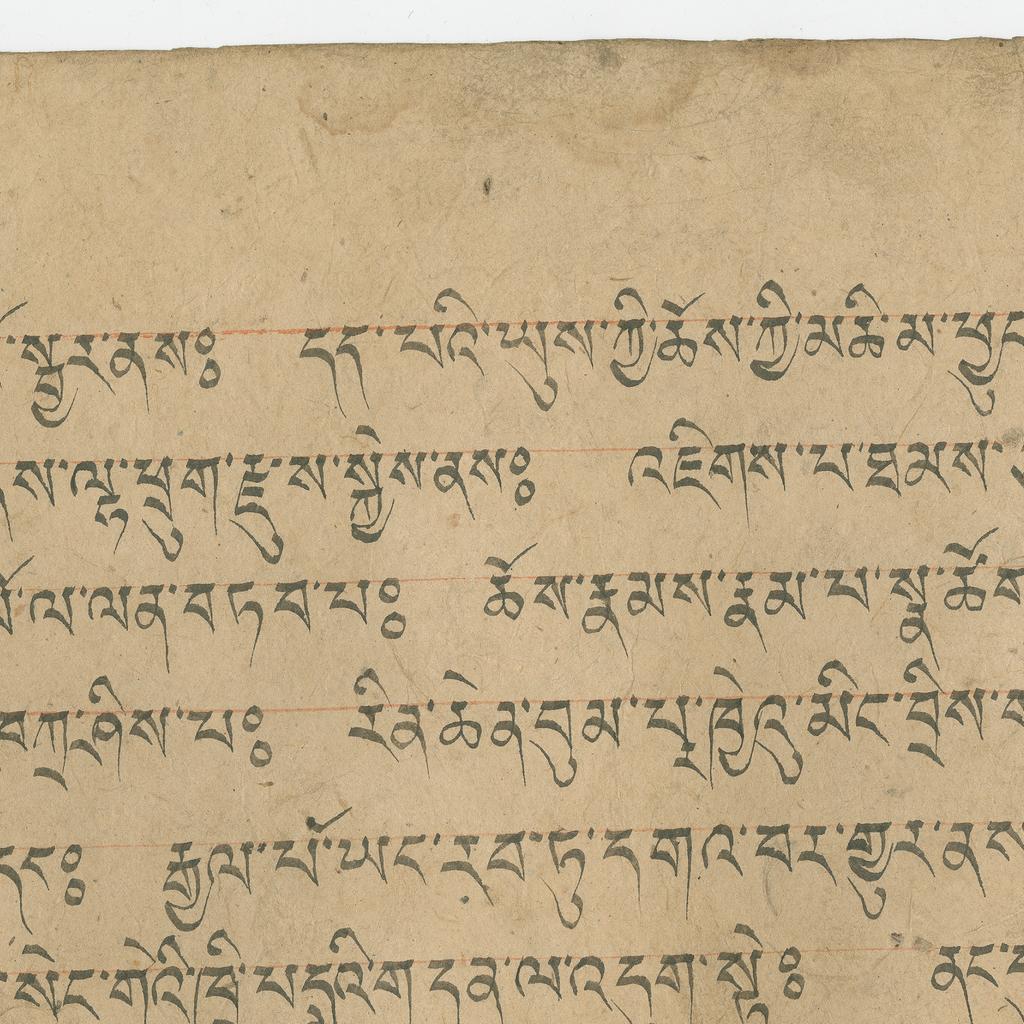 སྦྱར་ནས༔ དད་པའི་ཡུས་ཀྱི་ཆོས་ཀྱི་མཆི་མ་ཕྱུང
ས་ལྟ་ཕྲུག་རྫུ་ས་སྐྱེས་ནས༔ འཇིགས་པ་ཐམས་
ལ་ལན་བཏབ་པ༔ ཆོས་རྣམས་རྣམ་པ་སྣ་ཚོགས
བཀྲ་ཤིས་པ༔ རིན་ཆེན་དུམ་པུ་ཁྱེའུ་མིང་བྲིས་
དང༔ རྒྱལ་པོ་ཡང་རབ་ཏུ་དགའ་བར་གྱུར་ནས
སེང་གེའི་ཁྲི་པདའི་གདན་ལ་འདག་སྟེ༔ ནང་